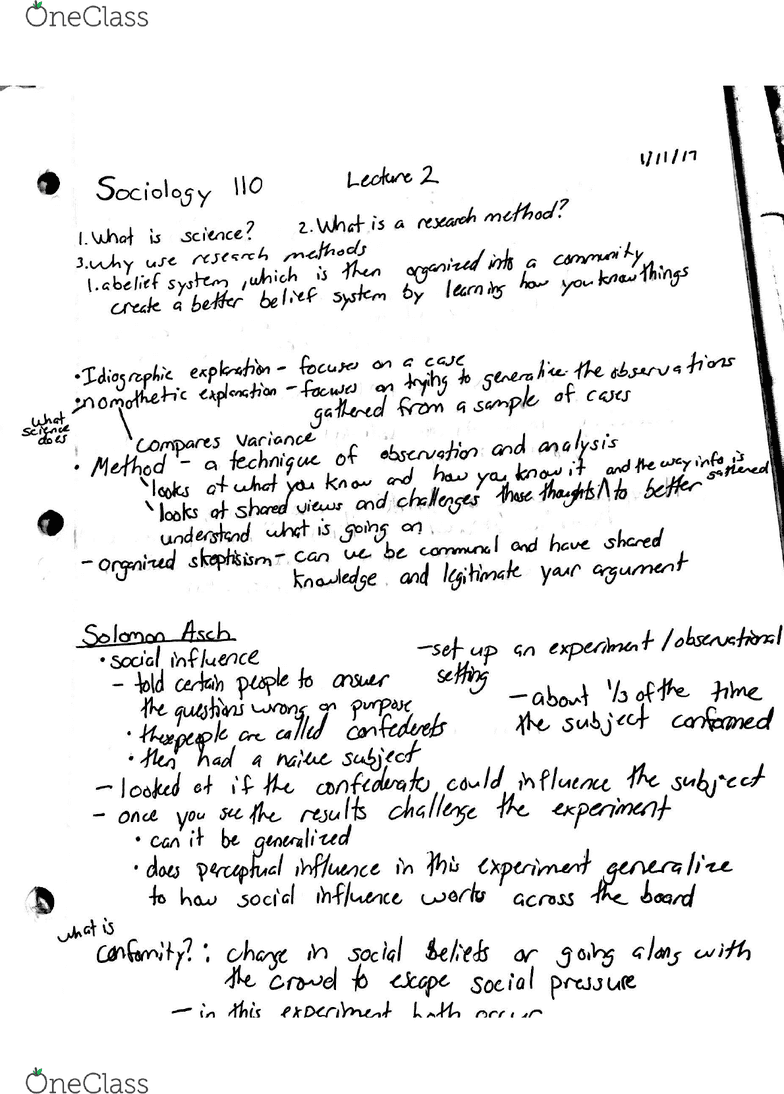 OneClass
1/11/17
Sociology 110 Lecture 2
1. What is science? 2. What is a research method?
3. Why use research methods
1. a belief system, which is then organized into a community
create a better belief system by learning how you know things
• Idiographic explanation - focuses on a case
• nomothetic explanation - focuses on trying to generalize the observations
gathered from a sample of cases
what
science
does
compares variance
• Method - a technique of observation and analysis
looks at what you know and how you know it and the way info is
gathered
looks at shared views and challenges those thoughts ^ to better
understand what is going on
- organized skeptisism - can we be communal and have shared
knowledge and legitimate your argument
Solomon Asch
• social influence
- told certain people to answer
the questions wrong on purpose
• these people are called confederets
• then had a naieve subject
- set up an experiment / observational
setting
- about 1/3 of the time
the subject conformed
- looked at if the confederates could influence the subject
- once you see the results challenge the experiment
• can it be generalized
• does perceptual influence in this experiment generalize
to how social influence works across the board
what is
conformity? : change in social beliefs or going along with
the crowd to escape social pressure
- in this experiment both occur
OneClass